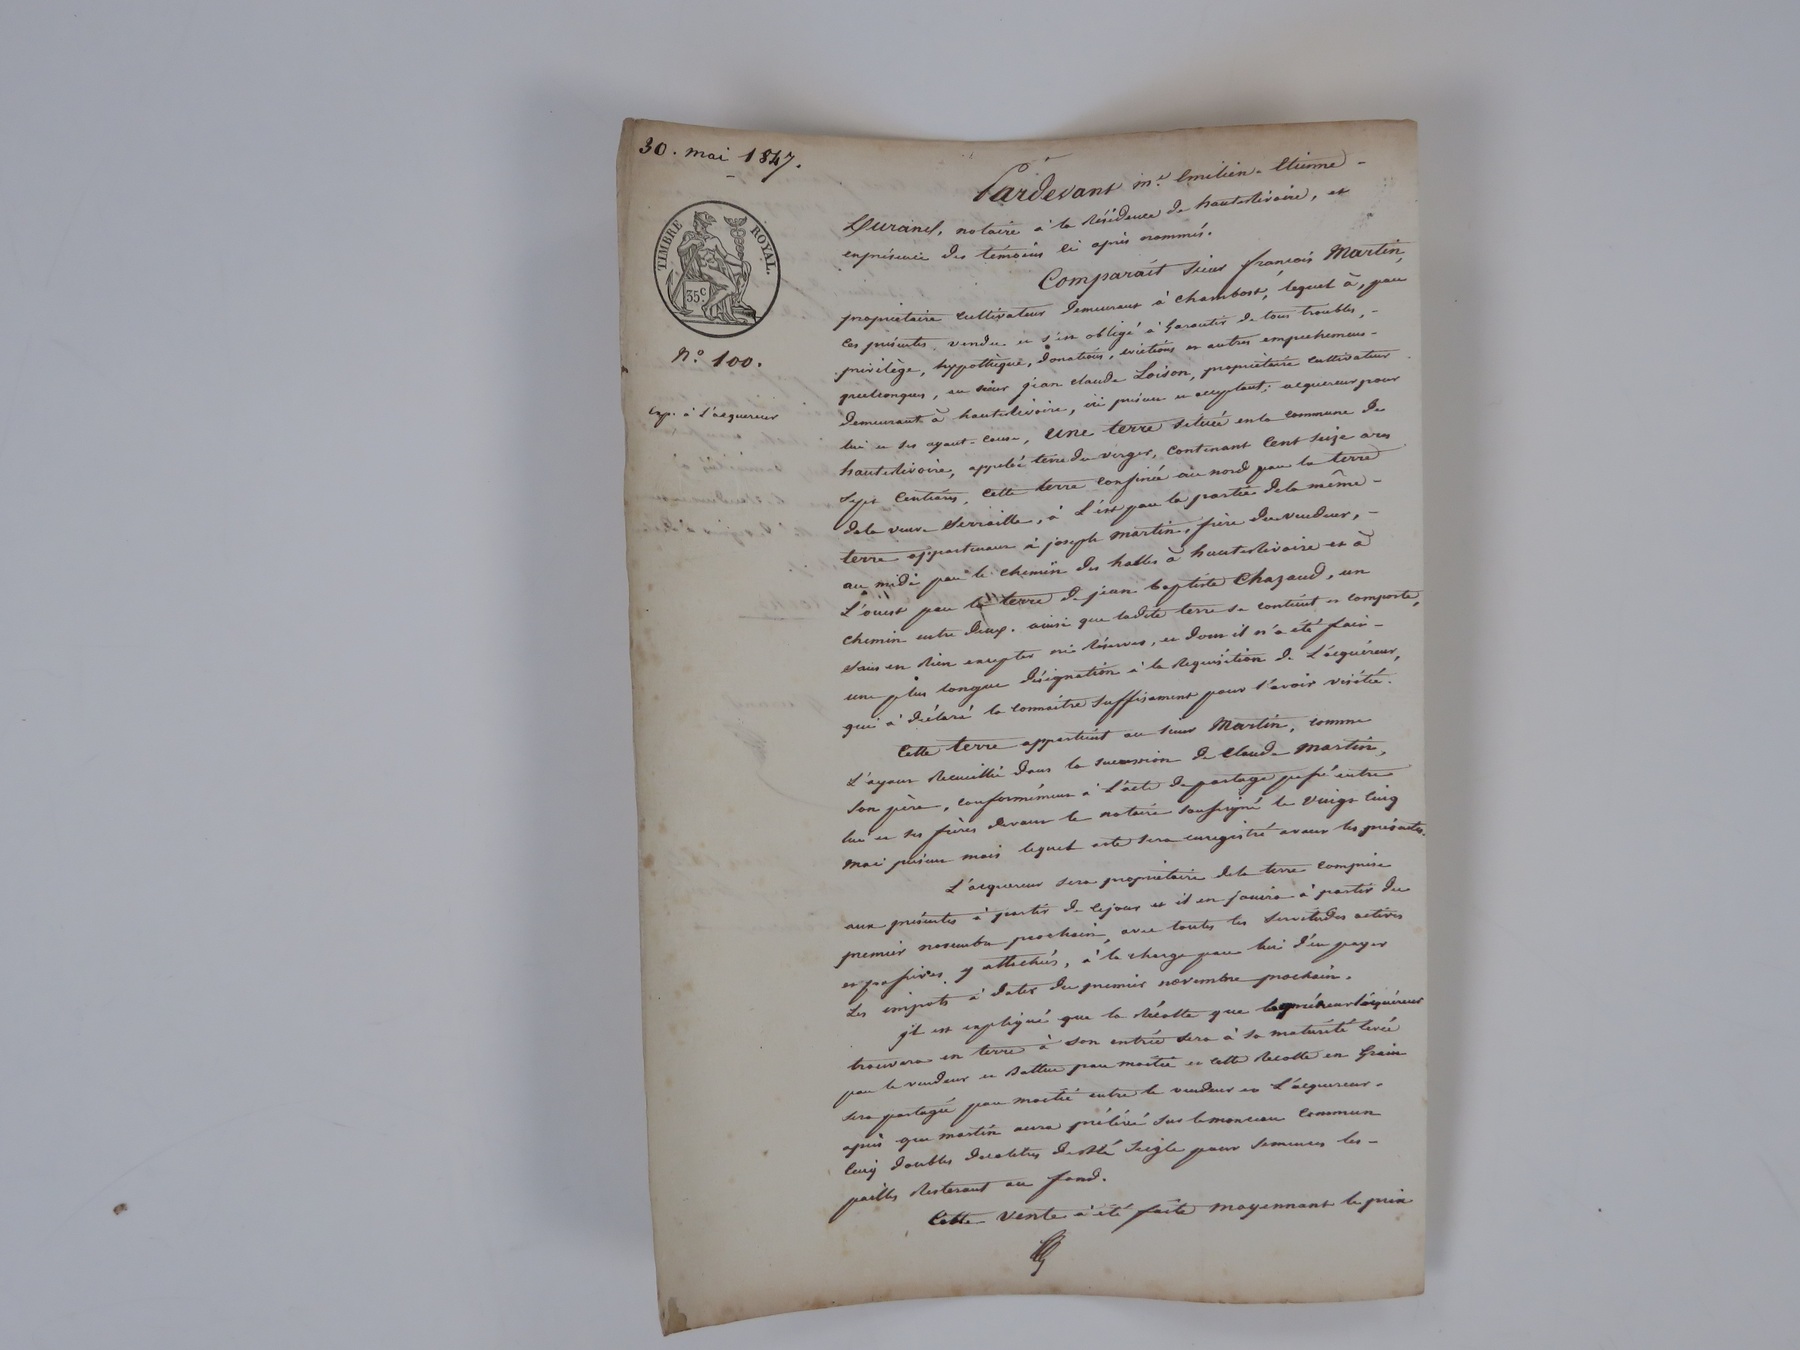 30. mai 1847.
TIMBRE ROYAL.
35 c.
N.o 100.
Exp. à l'acquereur
Pardevant m.e Emilien-Etienne-
Durand, notaire à la résidence de hauterivoire, et
enprésence des témoins ci après nommés.
Comparait sieur françois Martin,
propriétaire cultivateur demeurant à Chambost, lequel à, par
ces présentes vendu et s'est obligé à garantir de tous troubles,-
privilège, hypothèque, donations, evictions et autres empechemens-
quelconques, au sieur jean claude Loison, propriétaire cultivateur
demeurant à hauterivoire, ici présent et acceptant; acquereur pour
lui et ses ayant-cause, une terre située en la commune de
hauterivoire, appelée terre du verger, contenant cent seize ares
sept centiares, cette terre confinée au nord par la terre
dela veuve Serraille, à l'est par la partie dela même-
terre appartenant à joseph martin, frère du vendeur,-
au midi par le chemin des halles à hauterivoire et à
l'ouest par la terre de jean baptiste Chazaud, un
chemin entre deux. ainsi que ladite terre se contient et comporte,
sans en rien excepter ni réserver, et dont il n'a été fait-
une plus longue désignation à la réquisition de l'acquéreur,
qui à déclaré la connaitre suffisament pour l'avoir visitée.
Cette terre appartient au sieur Martin, comme
l'ayant recueillie dans la succession de Claude Martin,
son père, conformément à l'acte de partage passé entre
lui et ses frères devant le notaire soussigné le vingt cinq
mai présent mois lequel acte sera enregistré avant les présentes.
L'acquereur sera propriétaire dela terre comprise
aux présentes à partir de cejour et il en jouira à partir du
premier novembre prochain, avec toutes les servitudes actives
et passives y attachées, à la charge par lui d'en payer
les impots à dater du premier novembre prochain.
jl est expliqué que la récolte que l'acquéreur
trouvera en terre à son entrée sera à sa maturité levée
par le vendeur et battue par moitié et cette récolte en grain
sera partagée par moitié entre le vendeur et l'acquereur.
après que martin aura prélévé sur le monceau commun
cinq doubles décalitres de blé seigle pour semences les-
pailles resteront au fond.
Cette vente à été faite moyennant le prix